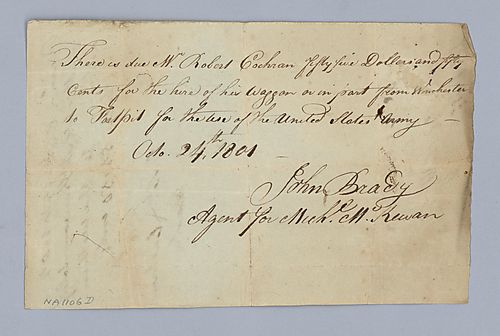 There is due Mr. Robert Cochran fifty five Dollars and fifty
Cents for the hire of his Waggon &c in part from Winchester
to Fortpit for the use of the United States Army —
Octo. 24th, 1801 —
John Brady
Agent for Michl. McKewan
NA1106D